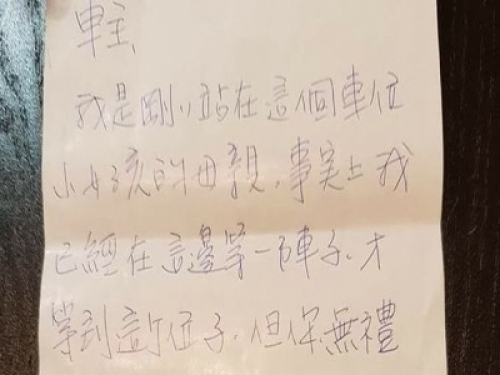 車主、
我是剛剛站在這個車位
小女孩的母親,事実上我
已經在這邊等一陣子、才
等到這个位子,但你無禮